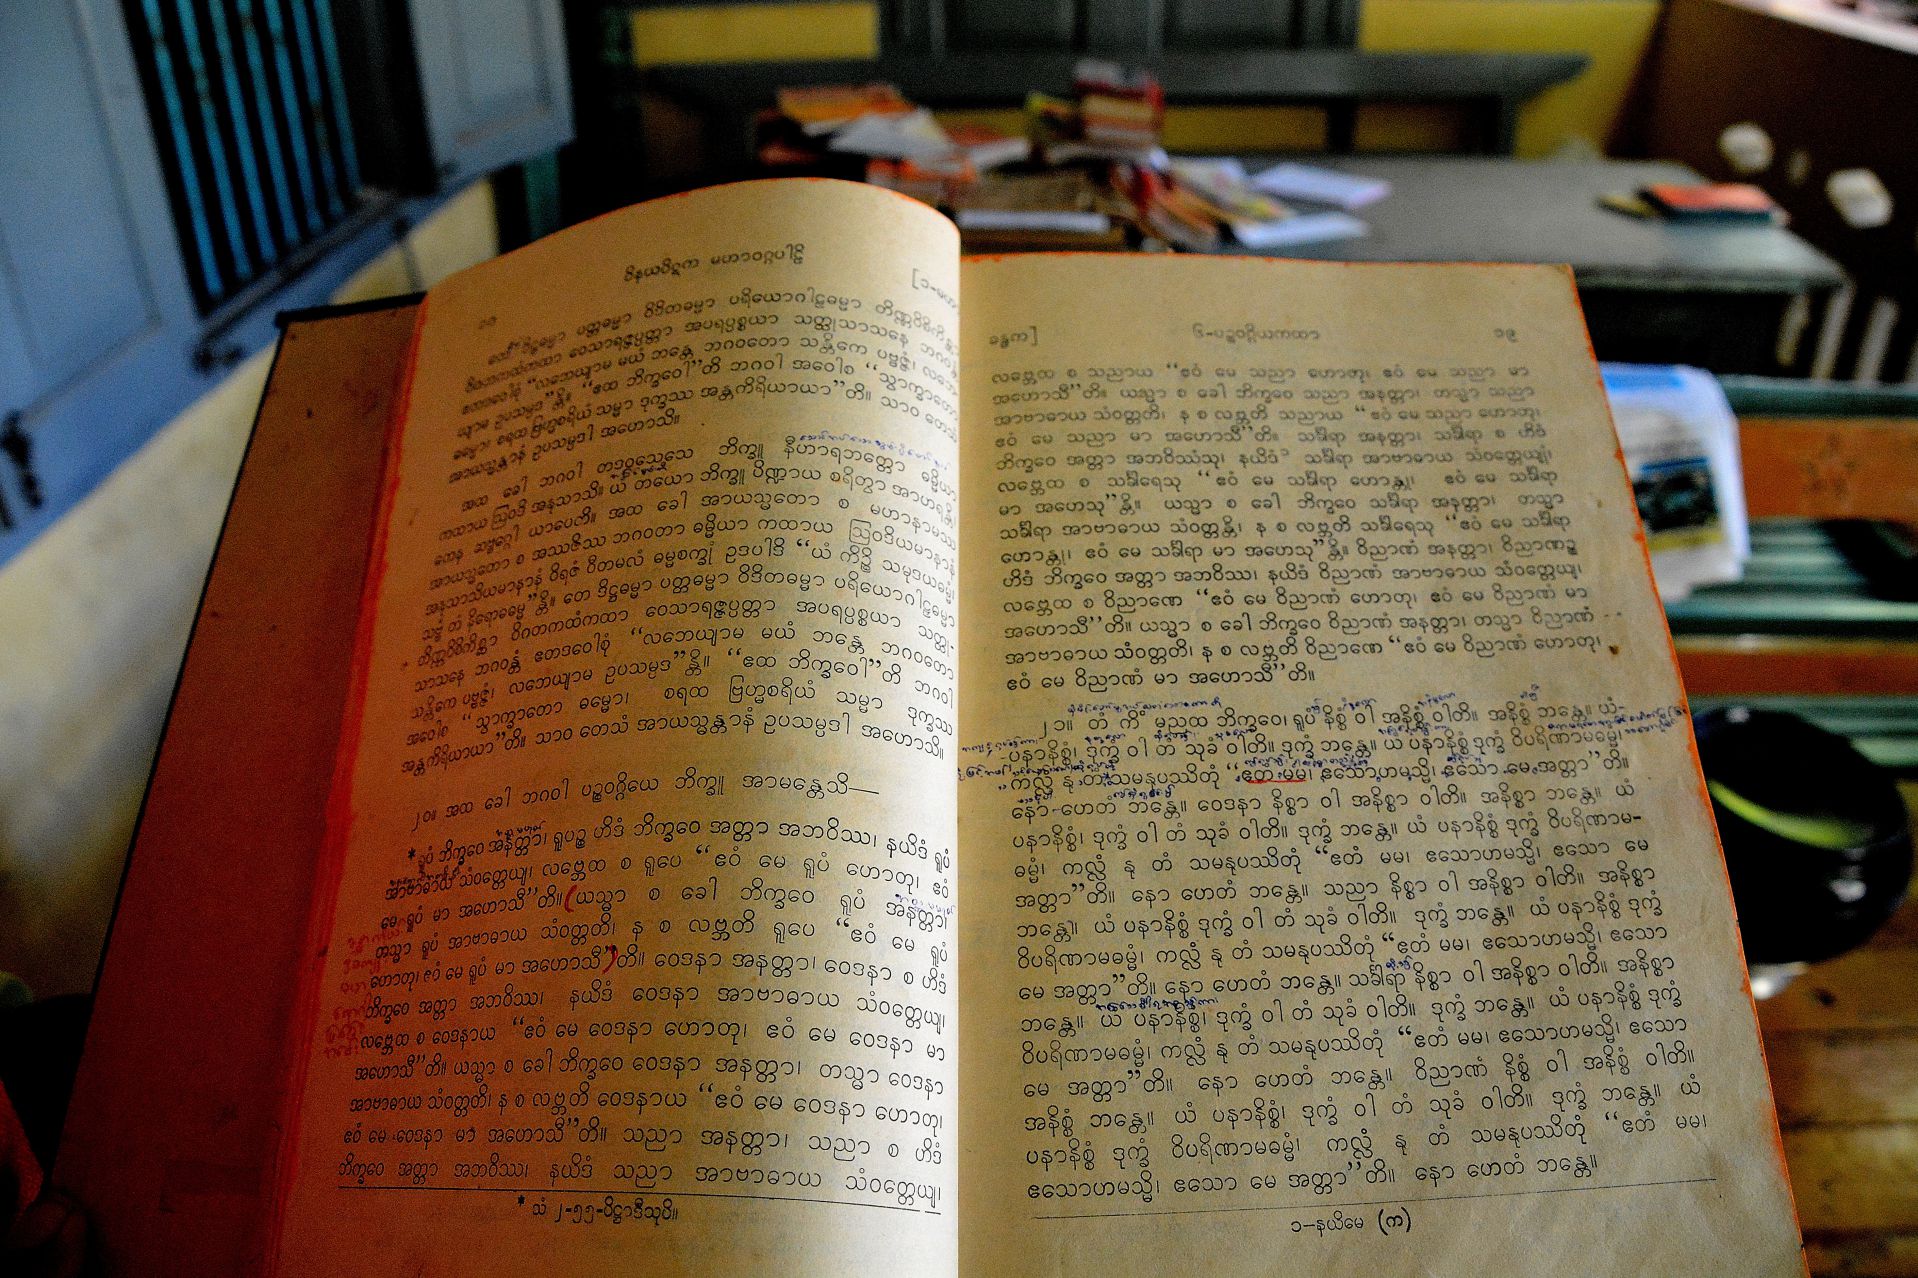 ဝိနယပိဋက မဟာဝဂ္ဂပါဠိ
[၁-မဟာ
ဒိဋ္ဌဓမ္မာ ပတ္တဓမ္မာ ဝိဒိတဓမ္မာ ပရိယောဂါဠှဓမ္မာ တိဏ္ဏဝိစိကိစ္ဆာ
ဝိဂတကထံကထာ ဝေသာရဇ္ဇပ္ပတ္တာ အပရပ္ပစ္စယာ သတ္ထုသာသနေ ဘဂဝန္တံ
ဧတဒဝေါစုံ “လဘေယျာမ မယံ ဘန္တေ ဘဂဝတော သန္တိကေ ပဗ္ဗဇ္ဇံ၊ လဘေ-
ယျာမ ဥပသမ္ပဒ”န္တိ။ “ဧထ ဘိက္ခဝေါ”တိ ဘဂဝါ အဝေါစ “သွာက္ခာတော
ဓမ္မော၊ စရထ ဗြဟ္မစရိယံ သမ္မာ ဒုက္ခဿ အန္တကိရိယာယာ”တိ။ သာဝ တေသံ
အာယသ္မန္တာနံ ဥပသမ္ပဒါ အဟောသိ။
အထ ခေါ ဘဂဝါ တဒဝသေသေ ဘိက္ခူ နီဟာရဘတ္တော ဓမ္မိယာ
ကထာယ ဩဝဒိ အနုသာသိ။ ယံ တယော ဘိက္ခူ ပိဏ္ဍာယ စရိတွာ အာဟရန္တိ၊
တေန ဆဗ္ဗဂ္ဂေါ ယာပေတိ။ အထ ခေါ အာယသ္မတော စ မဟာနာမဿ
အာယသ္မတော စ အဿဇိဿ ဘဂဝတာ ဓမ္မိယာ ကထာယ ဩဝဒိယမာနာနံ
အနုသာသိယမာနာနံ ဝိရဇံ ဝီတမလံ ဓမ္မစက္ခုံ ဥဒပါဒိ “ယံ ကိဉ္စိ သမုဒယဓမ္မံ၊
သဗ္ဗံ တံ နိရောဓဓမ္မ”န္တိ။ တေ ဒိဋ္ဌဓမ္မာ ပတ္တဓမ္မာ ဝိဒိတဓမ္မာ ပရိယောဂါဠှဓမ္မာ
တိဏ္ဏဝိစိကိစ္ဆာ ဝိဂတကထံကထာ ဝေသာရဇ္ဇပ္ပတ္တာ အပရပ္ပစ္စယာ သတ္ထု-
သာသနေ ဘဂဝန္တံ ဧတဒဝေါစုံ “လဘေယျာမ မယံ ဘန္တေ ဘဂဝတော
သန္တိကေ ပဗ္ဗဇ္ဇံ၊ လဘေယျာမ ဥပသမ္ပဒ”န္တိ။ “ဧထ ဘိက္ခဝေါ”တိ ဘဂဝါ
အဝေါစ “သွာက္ခာတော ဓမ္မော၊ စရထ ဗြဟ္မစရိယံ သမ္မာ ဒုက္ခဿ
အန္တကိရိယာယာ”တိ။ သာဝ တေသံ အာယသ္မန္တာနံ ဥပသမ္ပဒါ အဟောသိ။
၂၀။ အထ ခေါ ဘဂဝါ ပဉ္စဝဂ္ဂိယေ ဘိက္ခူ အာမန္တေသိ—
* ရူပံ ဘိက္ခဝေ အနတ္တာ၊ ရူပဉ္စ ဟိဒံ ဘိက္ခဝေ အတ္တာ အဘဝိဿ၊ နယိဒံ ရူပံ
အာဗာဓာယ သံဝတ္တေယျ၊ လဗ္ဘေထ စ ရူပေ “ဧဝံ မေ ရူပံ ဟောတု၊ ဧဝံ
မေ ရူပံ မာ အဟောသီ”တိ။ (ယသ္မာ စ ခေါ ဘိက္ခဝေ ရူပံ အနတ္တာ၊
တသ္မာ ရူပံ အာဗာဓာယ သံဝတ္တတိ၊ န စ လဗ္ဘတိ ရူပေ “ဧဝံ မေ ရူပံ
ဟောတု၊ ဧဝံ မေ ရူပံ မာ အဟောသီ”)တိ။ ဝေဒနာ အနတ္တာ၊ ဝေဒနာ စ ဟိဒံ
ဘိက္ခဝေ အတ္တာ အဘဝိဿ၊ နယိဒံ ဝေဒနာ အာဗာဓာယ သံဝတ္တေယျ၊
လဗ္ဘေထ စ ဝေဒနာယ “ဧဝံ မေ ဝေဒနာ ဟောတု၊ ဧဝံ မေ ဝေဒနာ မာ
အဟောသီ”တိ။ ယသ္မာ စ ခေါ ဘိက္ခဝေ ဝေဒနာ အနတ္တာ၊ တသ္မာ ဝေဒနာ
အာဗာဓာယ သံဝတ္တတိ၊ န စ လဗ္ဘတိ ဝေဒနာယ “ဧဝံ မေ ဝေဒနာ ဟောတု၊
ဧဝံ မေ ဝေဒနာ မာ အဟောသီ”တိ။ သညာ အနတ္တာ၊ သညာ စ ဟိဒံ
ဘိက္ခဝေ အတ္တာ အဘဝိဿ၊ နယိဒံ သညာ အာဗာဓာယ သံဝတ္တေယျ၊
* သံ ၂-၅၅-ပိဋ္ဌာဒီသုပိ။
ခန္ဓက]
၆-ပဉ္စဝဂ္ဂိယကထာ
၁၉
လဗ္ဘေထ စ သညာယ “ဧဝံ မေ သညာ ဟောတု၊ ဧဝံ မေ သညာ မာ
အဟောသီ”တိ။ ယသ္မာ စ ခေါ ဘိက္ခဝေ သညာ အနတ္တာ၊ တသ္မာ သညာ
အာဗာဓာယ သံဝတ္တတိ၊ န စ လဗ္ဘတိ သညာယ “ဧဝံ မေ သညာ ဟောတု၊
ဧဝံ မေ သညာ မာ အဟောသီ”တိ။ သင်္ခါရာ အနတ္တာ၊ သင်္ခါရာ စ ဟိဒံ
ဘိက္ခဝေ အတ္တာ အဘဝိဿံသု၊ နယိဒံ ၁ သင်္ခါရာ အာဗာဓာယ သံဝတ္တေယျုံ၊
လဗ္ဘေထ စ သင်္ခါရေသု “ဧဝံ မေ သင်္ခါရာ ဟောန္တု၊ ဧဝံ မေ သင်္ခါရာ
မာ အဟေသု”န္တိ။ ယသ္မာ စ ခေါ ဘိက္ခဝေ သင်္ခါရာ အနတ္တာ၊ တသ္မာ
သင်္ခါရာ အာဗာဓာယ သံဝတ္တန္တိ၊ န စ လဗ္ဘတိ သင်္ခါရေသု “ဧဝံ မေ သင်္ခါရာ
ဟောန္တု၊ ဧဝံ မေ သင်္ခါရာ မာ အဟေသု”န္တိ။ ဝိညာဏံ အနတ္တာ၊ ဝိညာဏဉ္စ
ဟိဒံ ဘိက္ခဝေ အတ္တာ အဘဝိဿ၊ နယိဒံ ဝိညာဏံ အာဗာဓာယ သံဝတ္တေယျ၊
လဗ္ဘေထ စ ဝိညာဏေ “ဧဝံ မေ ဝိညာဏံ ဟောတု၊ ဧဝံ မေ ဝိညာဏံ မာ
အဟောသီ”တိ။ ယသ္မာ စ ခေါ ဘိက္ခဝေ ဝိညာဏံ အနတ္တာ၊ တသ္မာ ဝိညာဏံ
အာဗာဓာယ သံဝတ္တတိ၊ န စ လဗ္ဘတိ ဝိညာဏေ “ဧဝံ မေ ဝိညာဏံ ဟောတု၊
ဧဝံ မေ ဝိညာဏံ မာ အဟောသီ”တိ။
၂၁။ တံ ကိံ မညထ ဘိက္ခဝေ၊ ရူပံ နိစ္စံ ဝါ အနိစ္စံ ဝါတိ။ အနိစ္စံ ဘန္တေ။ ယံ-
ပနာနိစ္စံ၊ ဒုက္ခံ ဝါ တံ သုခံ ဝါတိ။ ဒုက္ခံ ဘန္တေ။ ယံ ပနာနိစ္စံ ဒုက္ခံ ဝိပရိဏာမဓမ္မံ၊
ကလ္လံ နု တံ သမနုပဿိတုံ “ဧတံ မမ၊ ဧသောဟမသ္မိ၊ ဧသော မေ အတ္တာ”တိ။
နော ဟေတံ ဘန္တေ။ ဝေဒနာ နိစ္စာ ဝါ အနိစ္စာ ဝါတိ။ အနိစ္စာ ဘန္တေ။ ယံ
ပနာနိစ္စံ၊ ဒုက္ခံ ဝါ တံ သုခံ ဝါတိ။ ဒုက္ခံ ဘန္တေ။ ယံ ပနာနိစ္စံ ဒုက္ခံ ဝိပရိဏာမ-
ဓမ္မံ၊ ကလ္လံ နု တံ သမနုပဿိတုံ “ဧတံ မမ၊ ဧသောဟမသ္မိ၊ ဧသော မေ
အတ္တာ”တိ။ နော ဟေတံ ဘန္တေ။ သညာ နိစ္စာ ဝါ အနိစ္စာ ဝါတိ။ အနိစ္စာ
ဘန္တေ။ ယံ ပနာနိစ္စံ၊ ဒုက္ခံ ဝါ တံ သုခံ ဝါတိ။ ဒုက္ခံ ဘန္တေ။ ယံ ပနာနိစ္စံ ဒုက္ခံ
ဝိပရိဏာမဓမ္မံ၊ ကလ္လံ နု တံ သမနုပဿိတုံ “ဧတံ မမ၊ ဧသောဟမသ္မိ၊ ဧသော
မေ အတ္တာ”တိ။ နော ဟေတံ ဘန္တေ။ သင်္ခါရာ နိစ္စာ ဝါ အနိစ္စာ ဝါတိ။ အနိစ္စာ
ဘန္တေ။ ယံ ပနာနိစ္စံ၊ ဒုက္ခံ ဝါ တံ သုခံ ဝါတိ။ ဒုက္ခံ ဘန္တေ။ ယံ ပနာနိစ္စံ ဒုက္ခံ
ဝိပရိဏာမဓမ္မံ၊ ကလ္လံ နု တံ သမနုပဿိတုံ “ဧတံ မမ၊ ဧသောဟမသ္မိ၊ ဧသော
မေ အတ္တာ”တိ။ နော ဟေတံ ဘန္တေ။ ဝိညာဏံ နိစ္စံ ဝါ အနိစ္စံ ဝါတိ။
အနိစ္စံ ဘန္တေ။ ယံ ပနာနိစ္စံ၊ ဒုက္ခံ ဝါ တံ သုခံ ဝါတိ။ ဒုက္ခံ ဘန္တေ။ ယံ
ပနာနိစ္စံ ဒုက္ခံ ဝိပရိဏာမဓမ္မံ၊ ကလ္လံ နု တံ သမနုပဿိတုံ “ဧတံ မမ၊
ဧသောဟမသ္မိ၊ ဧသော မေ အတ္တာ”တိ။ နော ဟေတံ ဘန္တေ။
၁-နယိမေ (က)